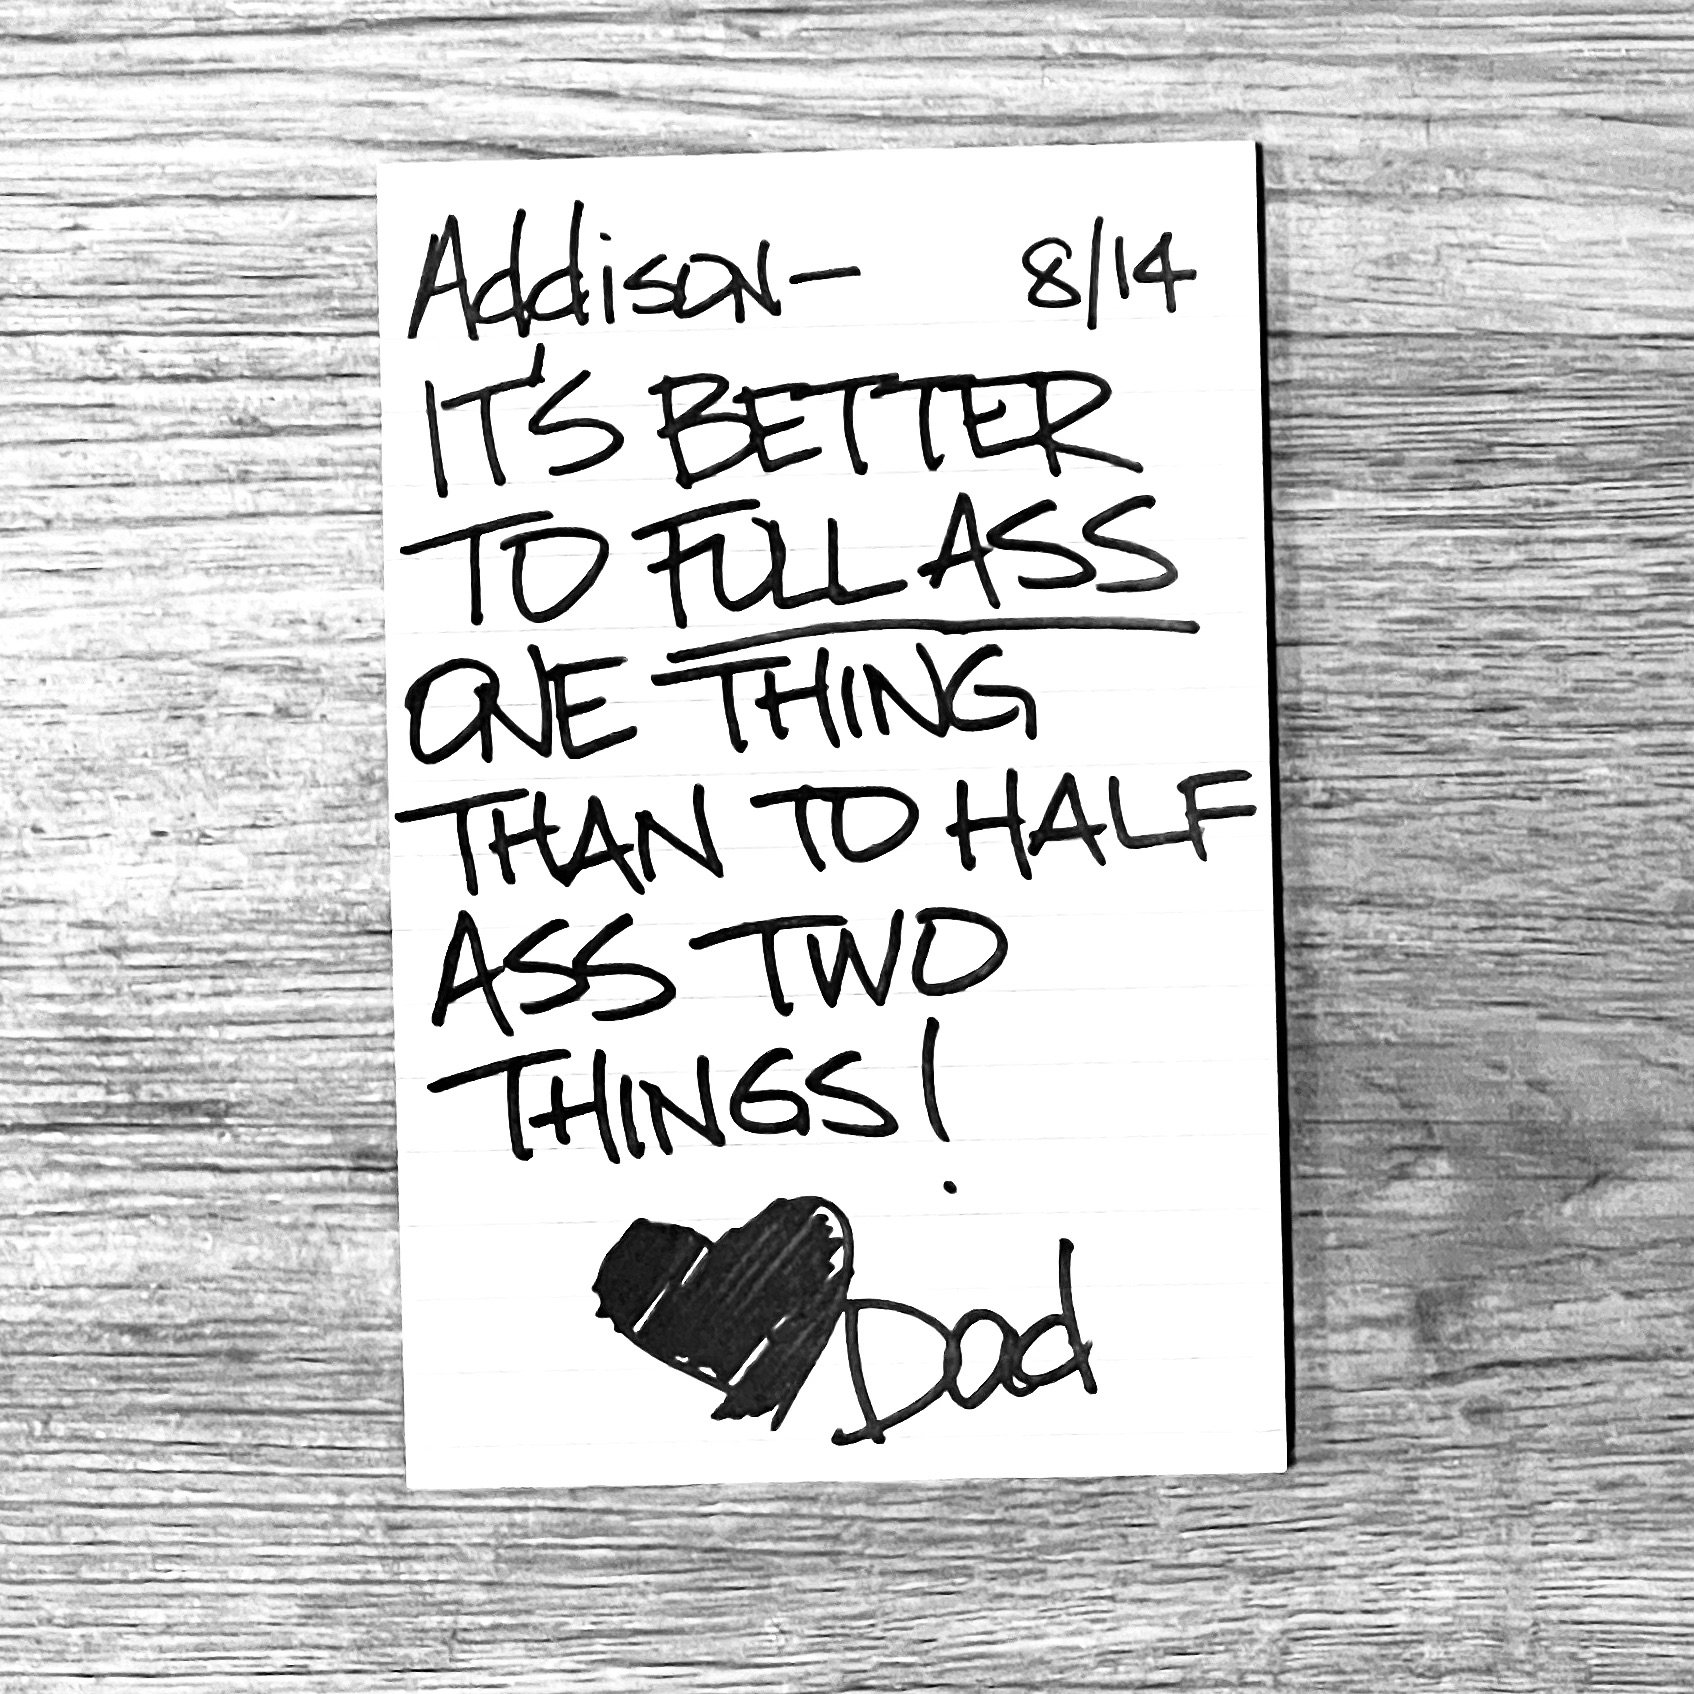 Addison— 8/14
IT'S BETTER
TO FULL ASS
ONE THING
THAN TO HALF
ASS TWO
THINGS!
Dad